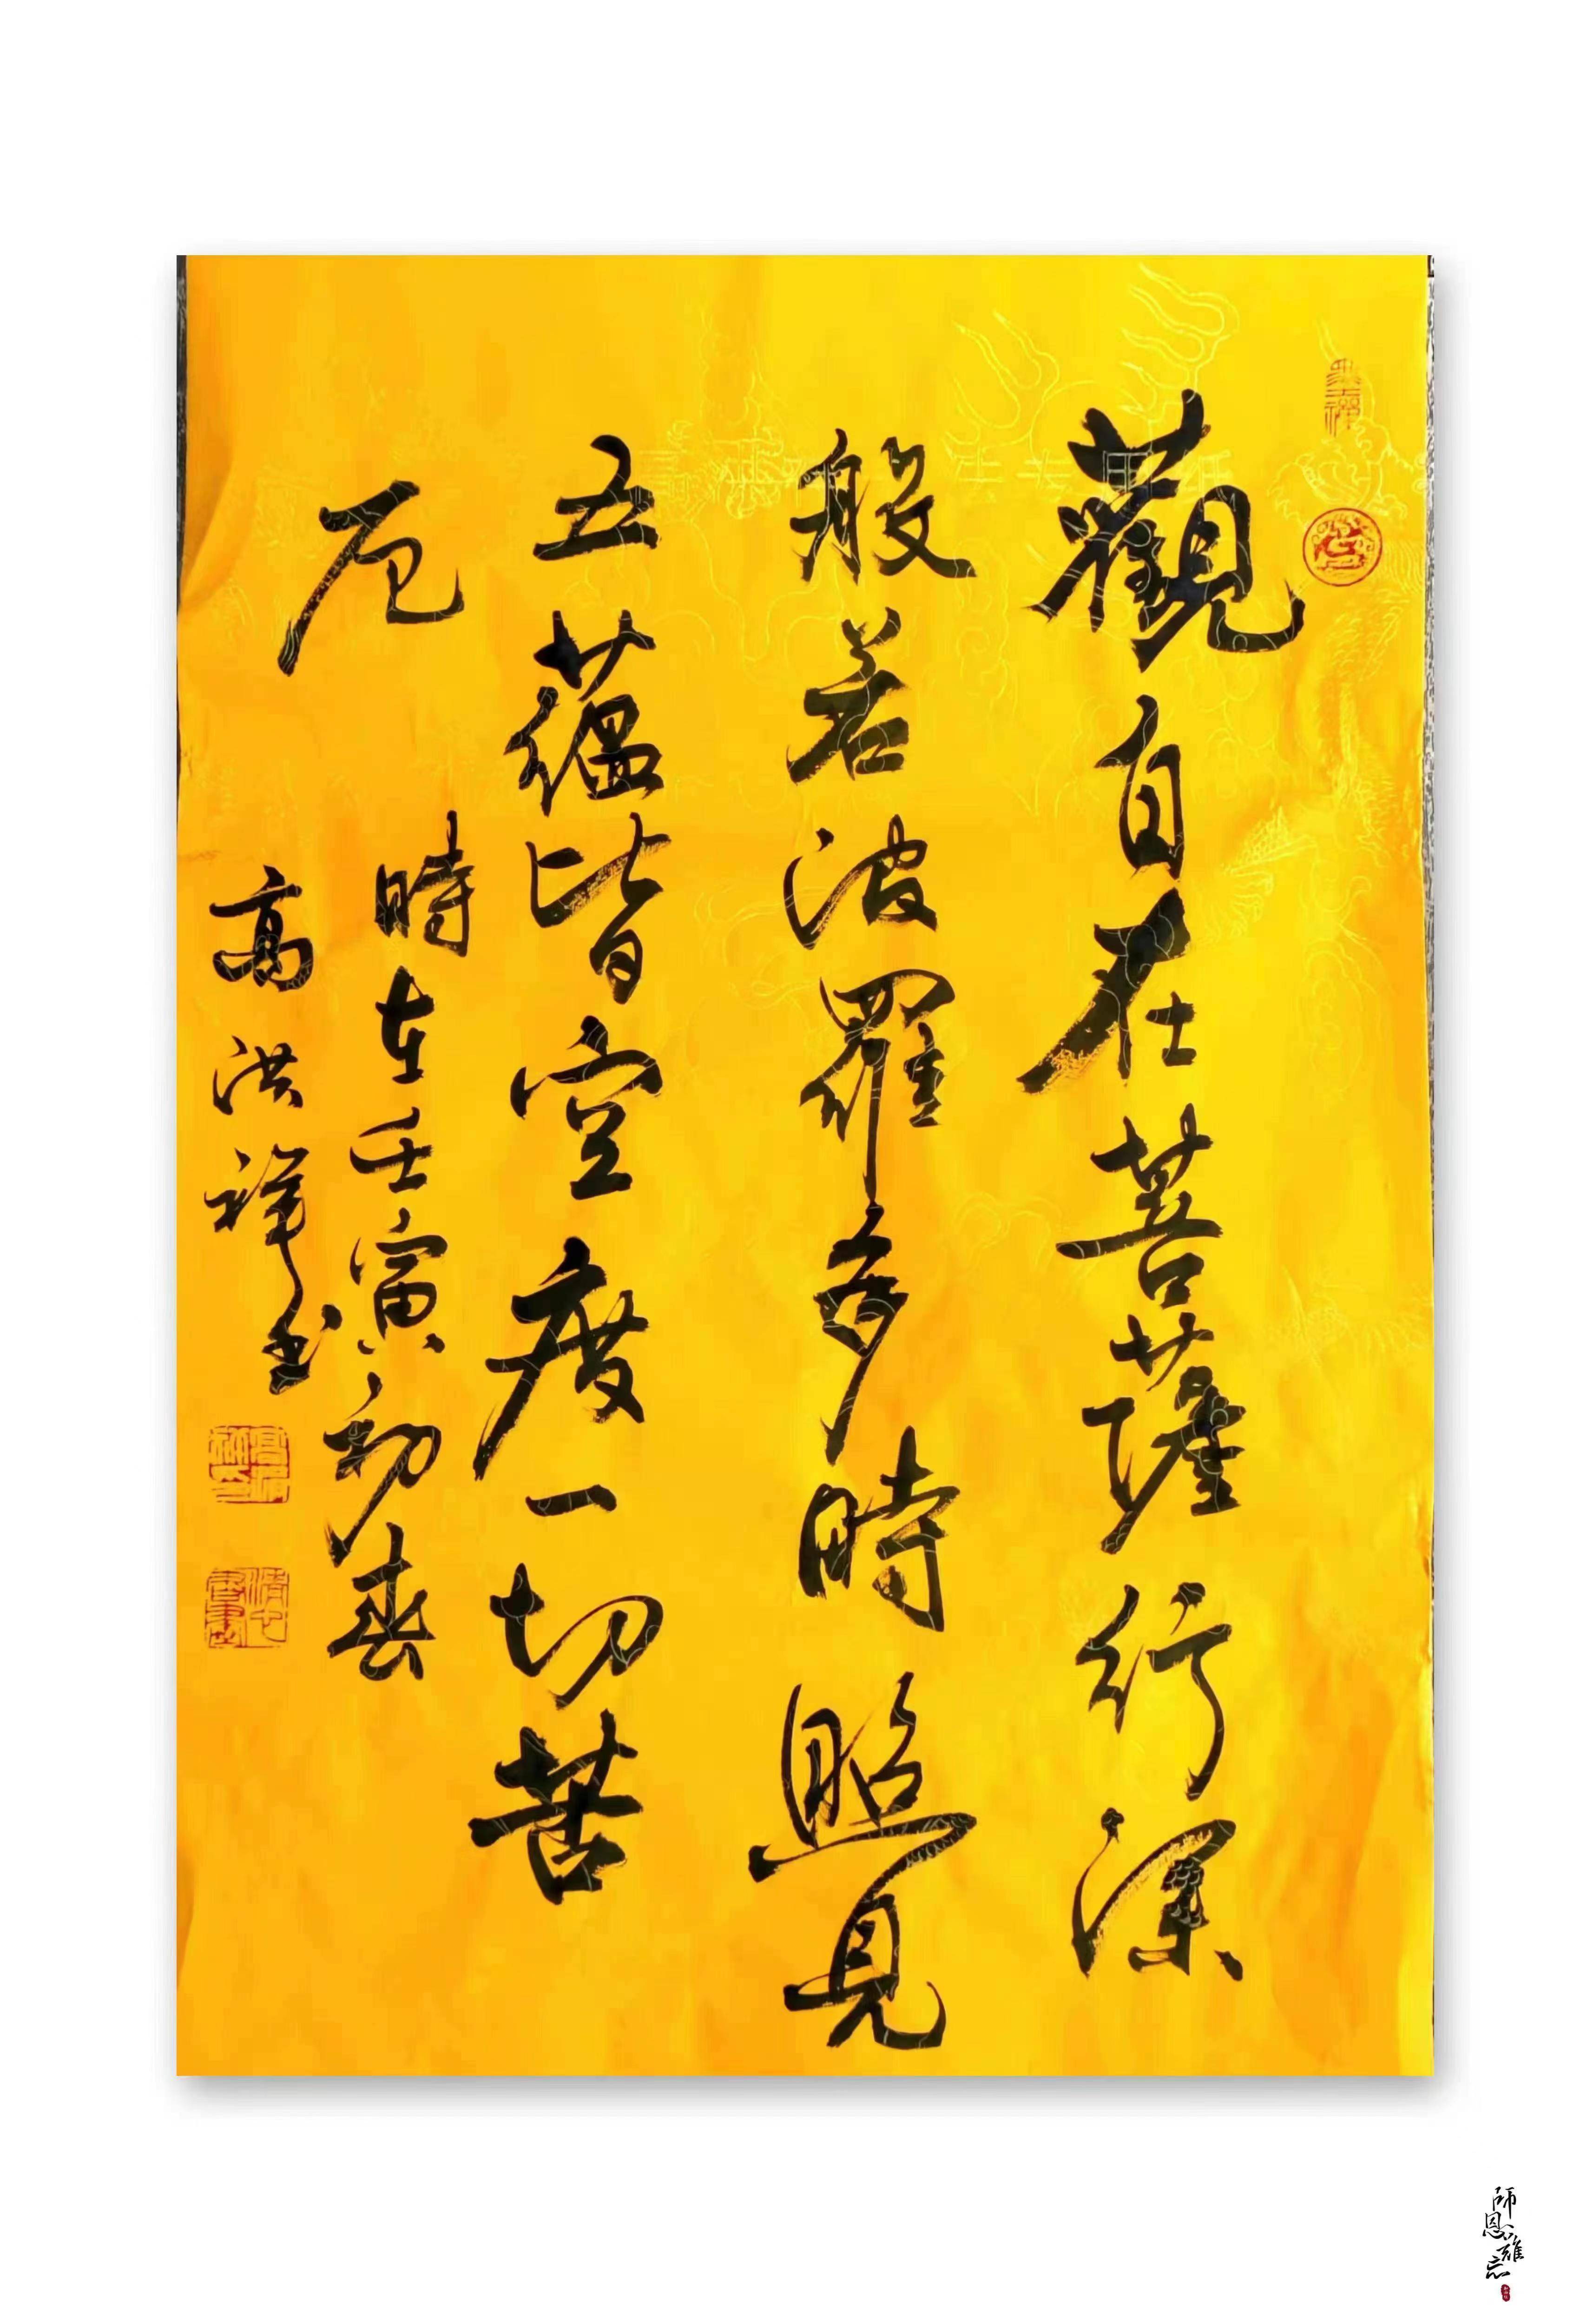 觀自在菩薩行深
般若波羅多時照見
五蘊皆空度一切苦
厄
時在壬寅初春
高洪祥书
師恩難忘